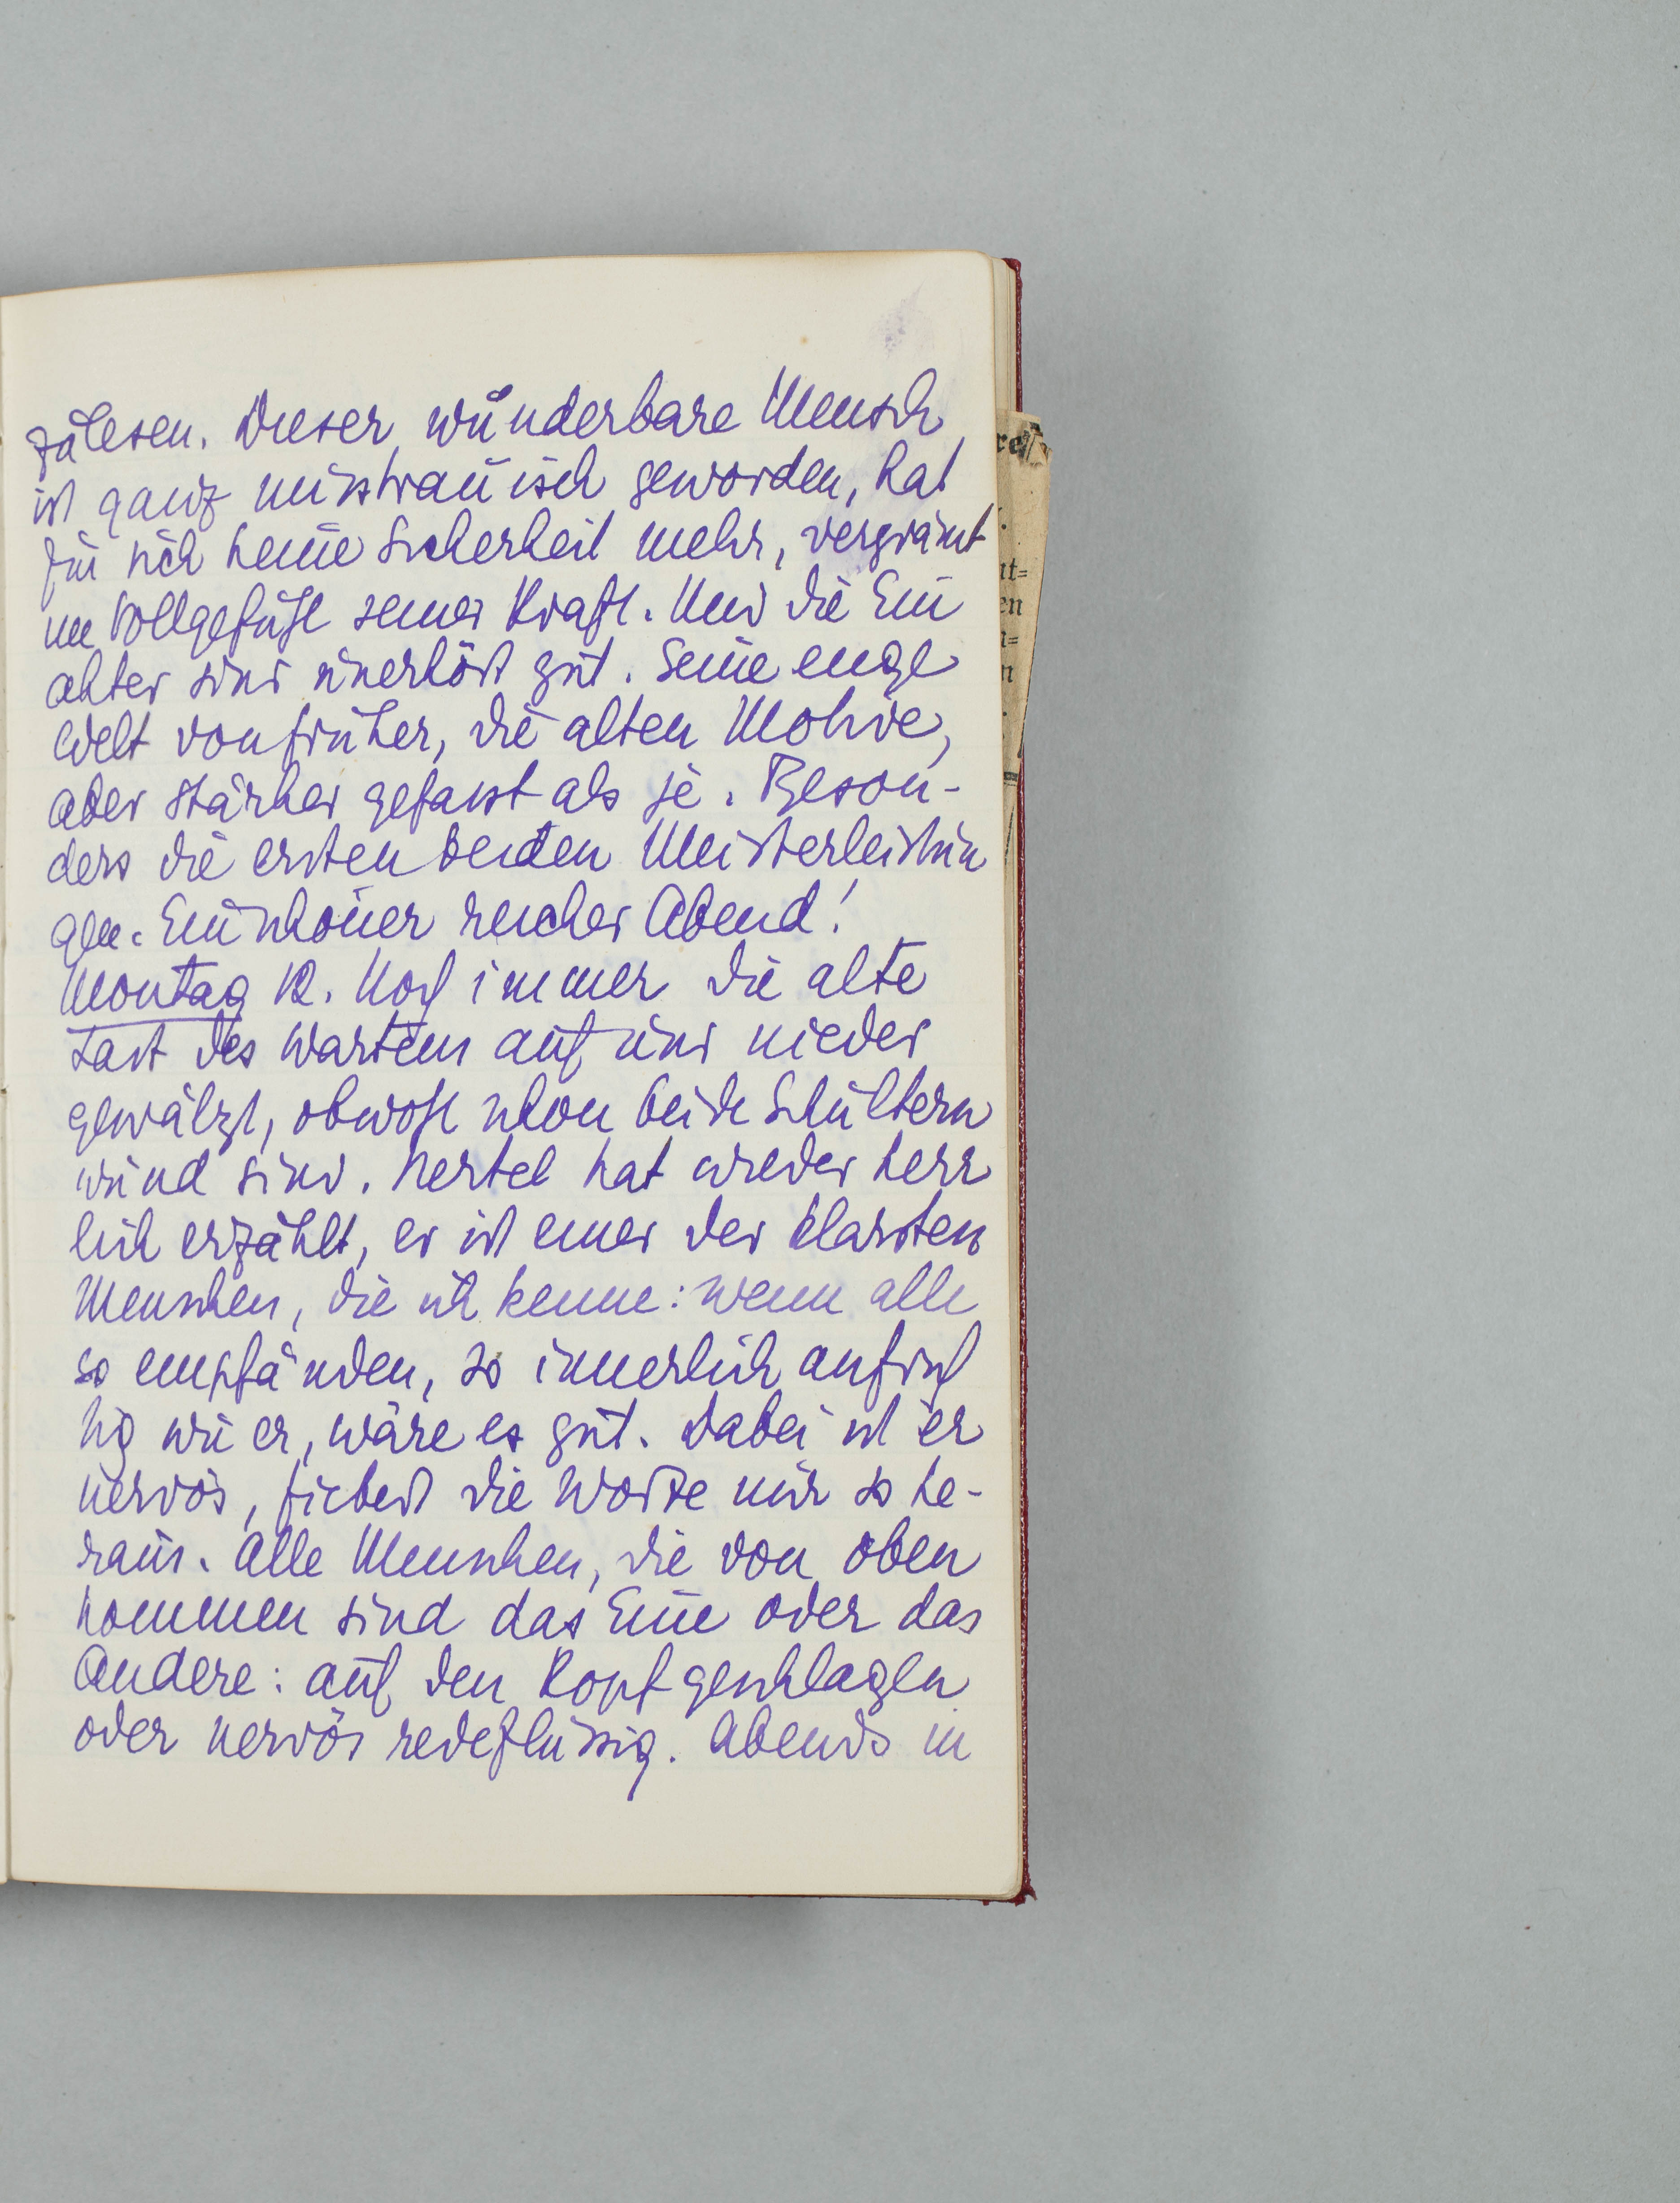 zulesen. Dieser wunderbare Mensch
ist ganz misstrauisch geworden, hat
für sich keine Sicherheit mehr, vergrämt
im Vollgefühl seiner Kraft. Und die Ein
akter sind unerhört gut. Seine enge
Welt von früher, die alten Motive,
aber stärker gefasst als je. Beson-
ders die ersten beiden Meisterleistun
gen. Ein schöner reicher Abend!
Montag 12. Noch immer die alte
Last des Wartens auf uns nieder
gewälzt, obwohl schon beide Schultern
wund sind. Hertel hat wieder herr
lich erzählt, er ist einer der klarsten
Menschen, die ich kenne: wenn alle
so empfänden, so innerlich aufrich
tig wie er, wäre es gut. Dabei ist er
nervös, fiebert die Worte nur so he-
raus. Alle Menschen, die von oben
kommen sind das Eine oder das
Andere: auf den Kopf geschlagen
oder nervös redeflüssig. Abends in
re
nt=
en
n=
n